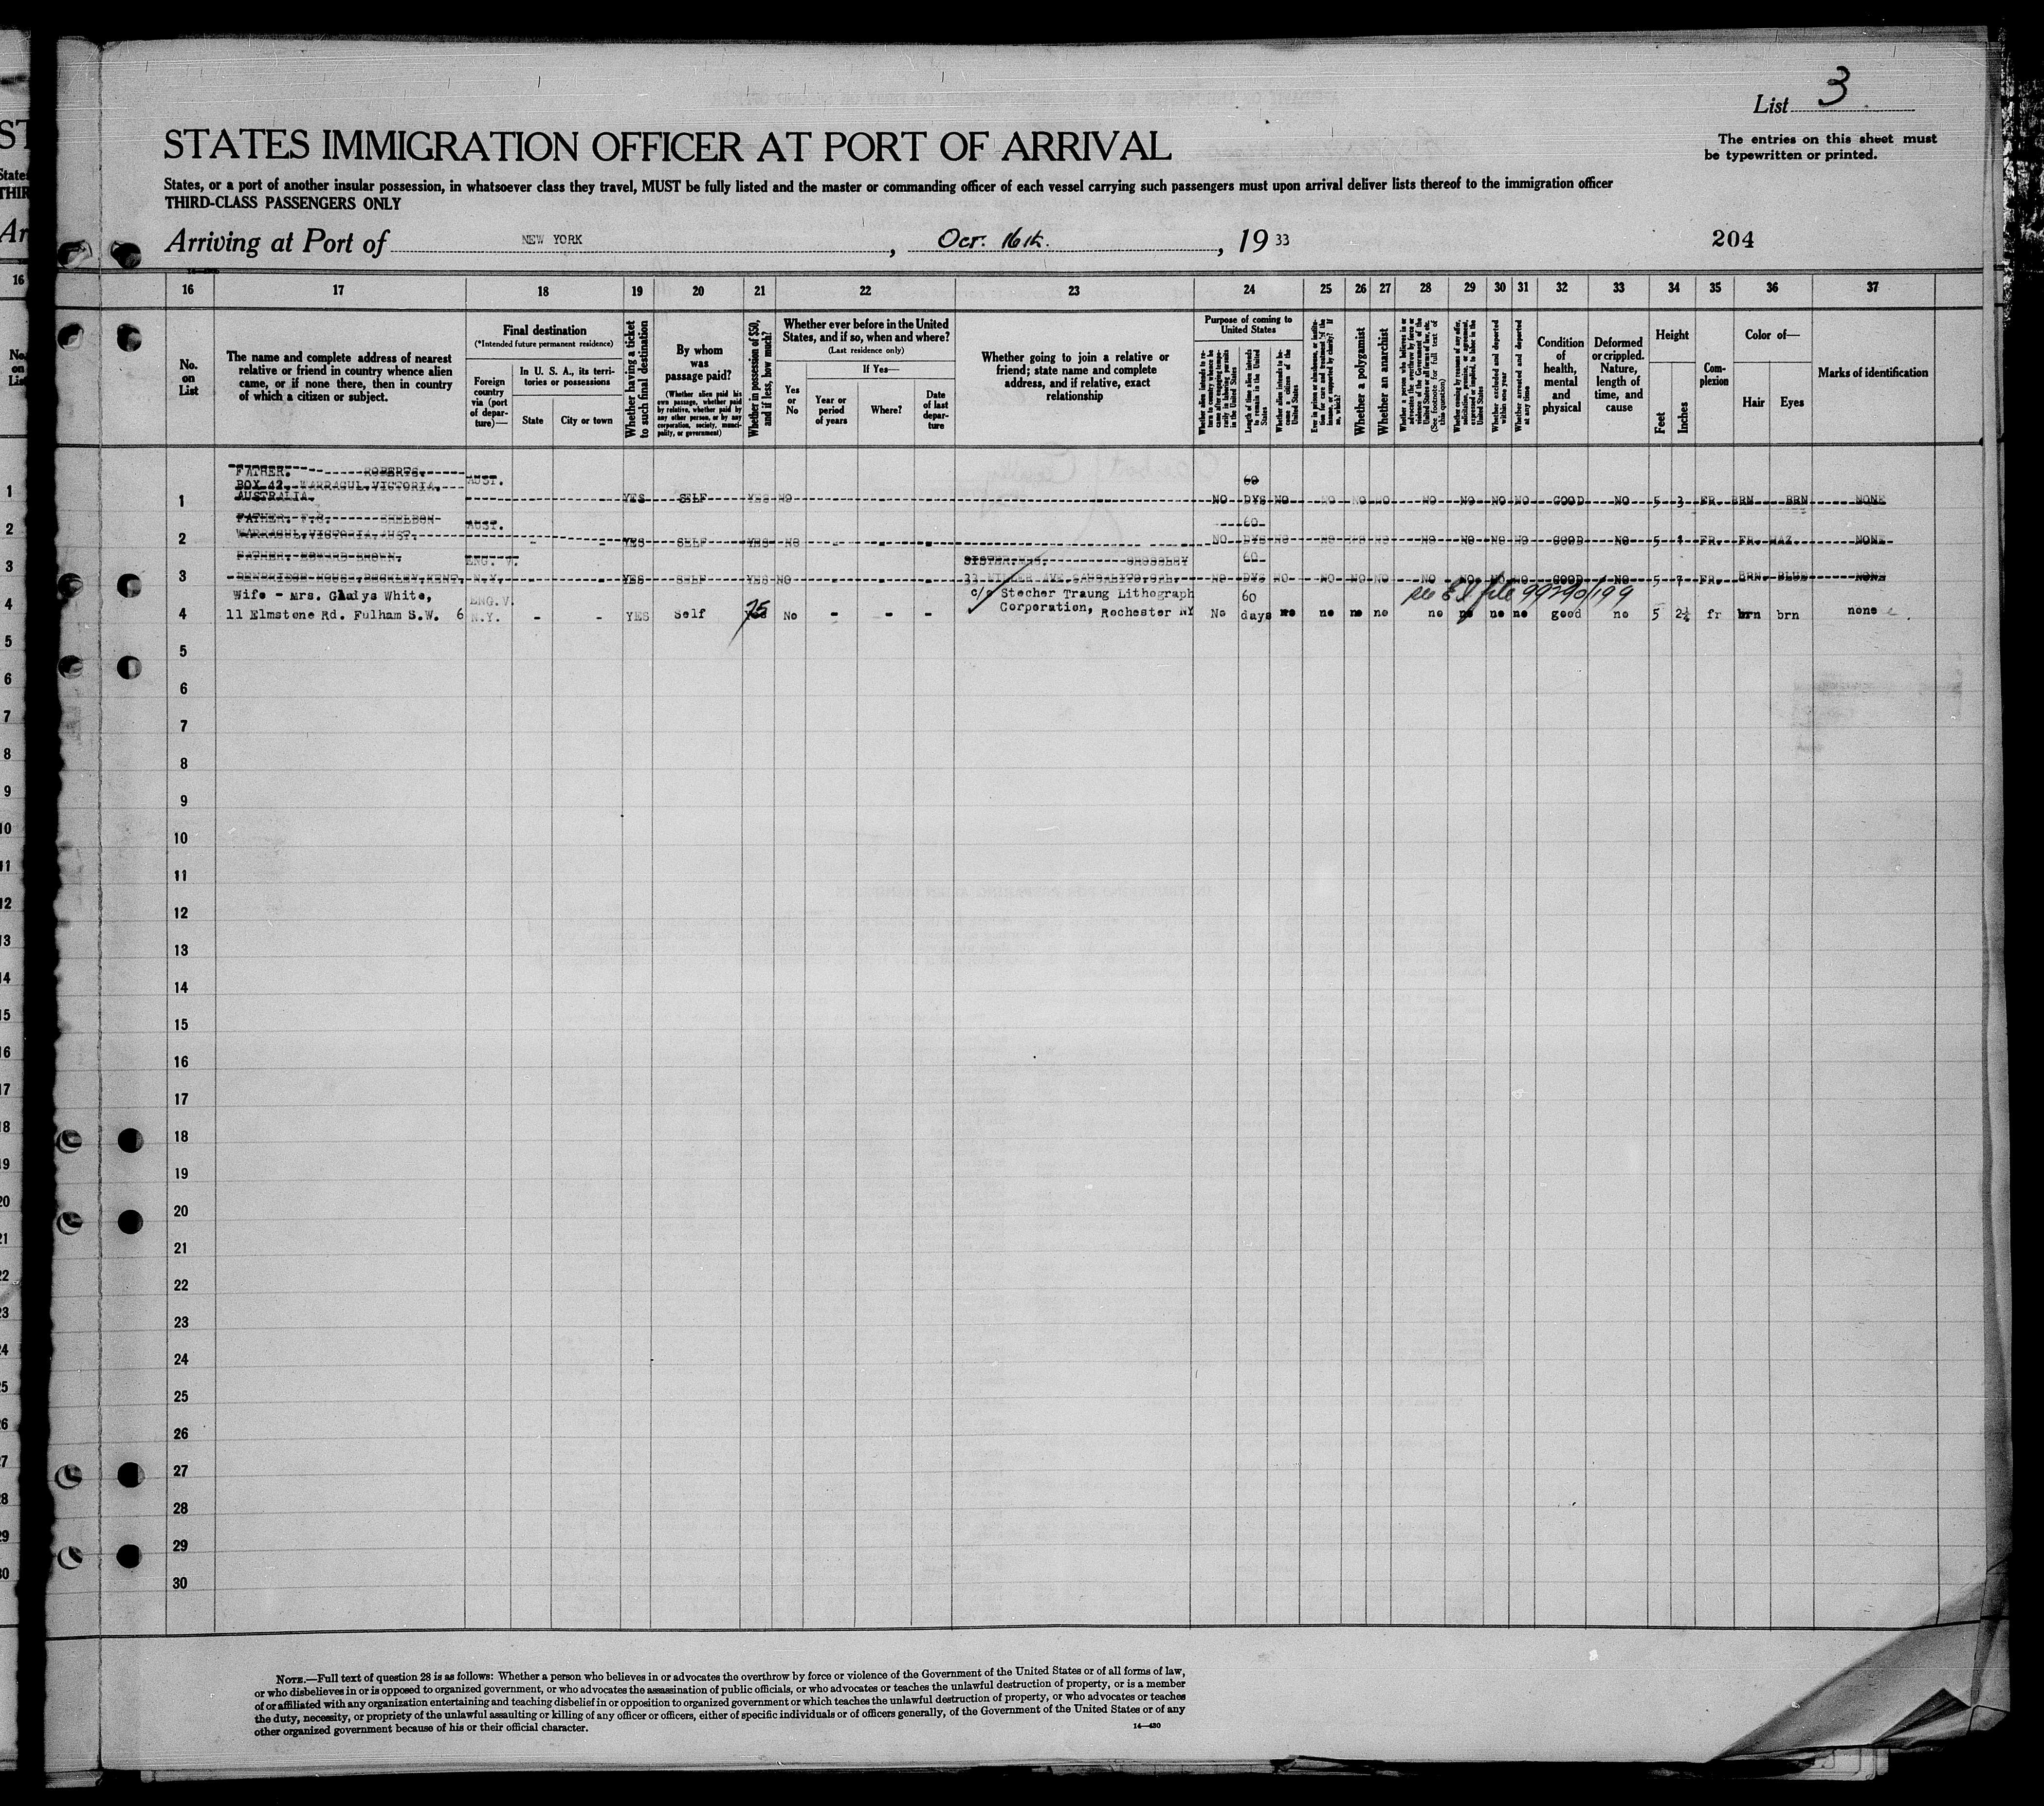 List 3
STATES IMMIGRATION OFFICER AT PORT OF ARRIVAL
The entries on this sheet must
be typewritten or printed.
States, or a port of another insular possession, in whatsoever class they travel, MUST be fully listed and the master or commanding officer of each vessel carrying such passengers must upon arrival deliver lists thereof to the immigration officer
THIRD-CLASS PASSENGERS ONLY
Arriving at Port of NEW YORK, Oct. 16th., 1933
204
16 17 18 19 20 21 22 23 24 25 26 27 28 29 30 31 32 33 34 35 36 37
No. on List
The name and complete address of nearest
relative or friend in country whence alien
came, or if none there, then in country
of which a citizen or subject.
Final destination
(*Intended future permanent residence)
Foreign
country
via (port
of depar-
ture)—
In U. S. A., its terri-
tories or possessions
State
City or town
Whether having a ticket
to such final destination
By whom
was
passage paid?
(Whether alien paid his
own passage, whether paid
by relative, whether paid by
any other person, or by any
corporation, society, munici-
pality, or government)
Whether in possession of $50,
and if less, how much?
Whether ever before in the United
States, and if so, when and where?
(Last residence only)
Yes
or
No
If Yes—
Year or
period
of years
Where?
Date
of last
depar-
ture
Whether going to join a relative or
friend; state name and complete
address, and if relative, exact
relationship
Purpose of coming to
United States
Whether alien intends to re-
turn to country whence he
came after engaging tempo-
rarily in laboring pursuits
in the United States
Length of time alien intends
to remain in the United
States
Whether alien intends to be-
come a citizen of the
United States
Ever in prison or almshouse, or institu-
tion for care and treatment of the
insane, or supported by charity? If
so, which?
Whether a polygamist
Whether an anarchist
Whether a person who believes in or
advocates the overthrow by force or
violence of the Government of the
United States or all forms of law, etc.
(See footnote for full text of
this question)
Whether coming by reason of any offer,
solicitation, promise, or agreement,
expressed or implied, to labor in the
United States
Whether excluded and deported
within one year
Whether arrested and deported
at any time
Condition
of
health,
mental
and
physical
Deformed
or crippled.
Nature,
length of
time, and
cause
Height
Feet
Inches
Com-
plexion
Color of—
Hair
Eyes
Marks of identification
FATHER. ROBERTS.
BOX 42. WARRAGUL.VICTORIA. AUST. 60
1 AUSTRALIA. YES SELF YES NO NO DYS NO NO NO NO NO NO NO NO GOOD NO 5 3 FR. BRN BRN NONE
FATHER. F.C. SHELDON AUST. 60
2 WARRAGUL.VICTORIA.AUST. - - YES SELF YES NO - - - NO DYS NO NO NO NO NO NO NO GOOD NO 5 4 FR. FR. HAZ. NONE
FATHER. EDWARD BROWN. ENG. V. SISTER.MRS. 60
3 HOUSE.BUCKLEY.KENT. N.Y. YES SELF YES NO - - - 33 MILLER AVE.SAUSALITO.CAL. NO DYS NO NO NO NO NO NO NO NO GOOD NO 5 7 FR. BRN. BLUE NONE
Wife - Mrs. Gladys White, ENG.V. c/o Stecher Traung Lithograph 60 see E I file 99290/199
4 11 Elmstone Rd. Fulham S.W. 6 N.Y. - - YES Self 75 No - - - Corporation, Rochester NY No days no no no no no no no no good no 5 2½ fr brn brn none
5
6
7
8
9
10
11
12
13
14
15
16
17
18
19
20
21
22
23
24
25
26
27
28
29
30
NOTE.—Full text of question 28 is as follows: Whether a person who believes in or advocates the overthrow by force or violence of the Government of the United States or of all forms of law,
or who disbelieves in or is opposed to organized government, or who advocates the assassination of public officials, or who advocates or teaches the unlawful destruction of property, or is a member
of or affiliated with any organization entertaining and teaching disbelief in or opposition to organized government or which teaches the unlawful destruction of property, or who advocates or teaches
the duty, necessity, or propriety of the unlawful assaulting or killing of any officer or officers, either of specific individuals or of officers generally, of the Government of the United States or of any
other organized government because of his or their official character.
14—430